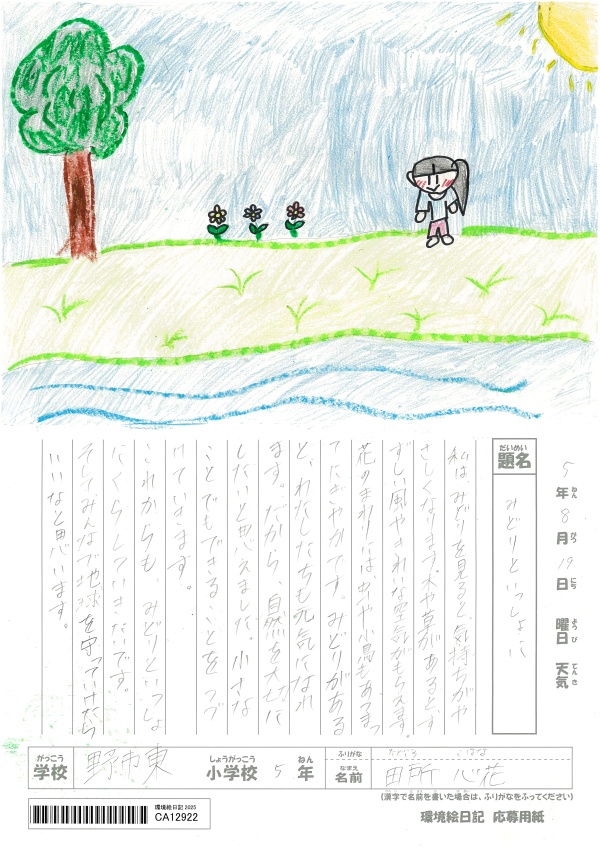 5年8月19日 曜日 天気
ねん がつ にち ようび てんき
だいめい
題名 みどりといっしょに
私は、みどりを見ると、気持ちがや
さしくなります。木や草があるとす
ずしい風やきれいな空気がもらえます。
花のまわりには虫や小鳥もあつまっ
てにぎやかです。みどりがある
と、わたしたちも元気になれ
ます。だから、自然を大切に
したいと思えました。小さな
ことでもできることをつづ
けていきます。
これからも、みどりといっしょ
にくらしていきたいです。
そしてみんなで地球を守っていけたら
いいなと思います。
がっこう しょうがっこう ねん
学校 野市東 小学校 5年
ふりがな たどころ こはな
なまえ
名前 田所 心花
(漢字で名前を書いた場合は、ふりがなをふってください)
環境絵日記 2025
CA12922
環境絵日記 応募用紙